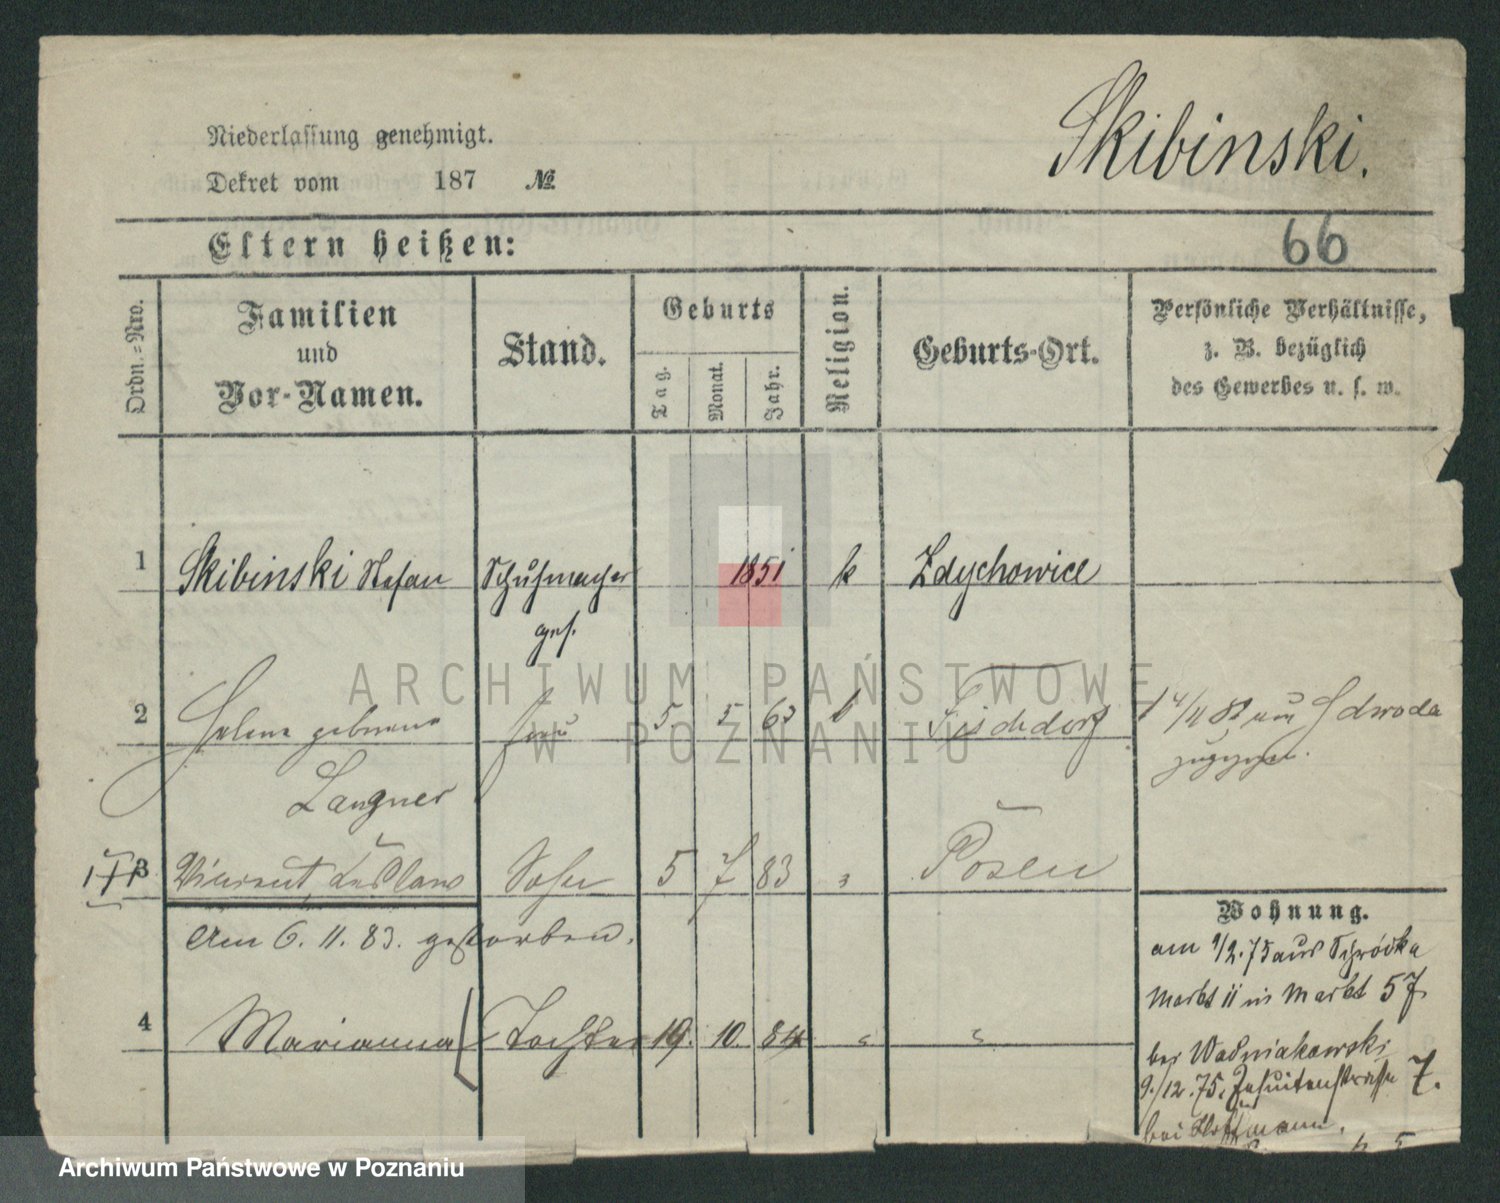 Skibinski.
Niederlassung genehmigt.
Dekret vom 187 №
66
Eltern heißen:
Ordn.=Nro.
Familien
und
Vor-Namen.
Stand.
Geburts
Tag.
Monat.
Jahr.
Religion.
Geburts-Ort.
Persönliche Verhältnisse,
z. B. bezüglich
des Gewerbes u. s. w.
1 Skibinski Stefan Schuhmacher 1851 k Zdychowice
ges.
2 Helene geborene Frau 5 5 63 Tischdorf
Langner
3 Vincent Sohn 5 7 83 " Posen
Am 6. 11. 83. gestorben.
4 Marianna Tochter 19. 10. 84 " "
Wohnung.
am 1/2.75 aus Schrodka
Markt 11 in Markt 57
bei Wozniakowski
9./12.75. Jesuitenstrasse 7.
bei Hoffmann.
ARCHIWUM PAŃSTWOWE
W POZNANIU
Archiwum Państwowe w Poznaniu